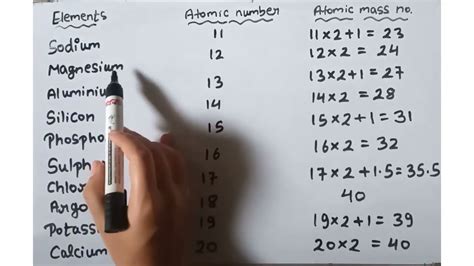 Elements Atomic number Atomic mass no.
Sodium 11 11×2+1 = 23
Magnesium 12 12×2 = 24
Aluminiu 13 13×2+1 = 27
Silicon 14 14×2 = 28
Phospho 15 15×2+1 = 31
Sulph 16 16×2 = 32
Chlo 17 17×2+1.5 = 35.5
Argo 18 40
Potass 19 19×2+1 = 39
Calcium 20 20×2 = 40